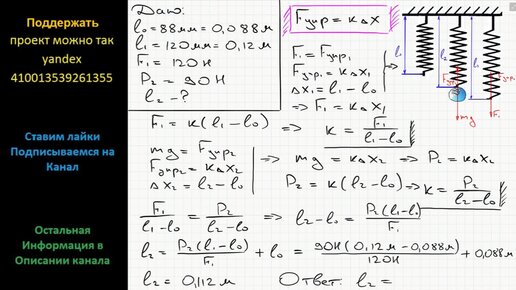 Поддержать
проект можно так
yandex
410013539261355
Ставим лайки
Подписываемся на
Канал
Остальная
Информация в
Описании канала
Дано:
l₀ = 88мм = 0,088м
l₁ = 120мм = 0,12 м
F₁ = 120 Н
P₂ = 90 Н
l₂ - ?
Fупр = кΔx
F₁ = Fупр₁
Fупр₁ = кΔx₁
Δx₁ = l₁ - l₀
⇒ F₁ = кΔx₁
F₁ = к(l₁ - l₀) ⇒ к = F₁/(l₁ - l₀)
mg = Fупр₂
Fупр₂ = кΔx₂
Δx₂ = l₂ - l₀
⇒ mg = кΔx₂ ⇒ P₂ = кΔx₂
P₂ = к(l₂ - l₀) ⇒ к = P₂/(l₂ - l₀)
F₁/(l₁ - l₀) = P₂/(l₂ - l₀) ⇒ l₂ - l₀ = P₂(l₁ - l₀)/F₁
l₂ = P₂(l₁ - l₀)/F₁ + l₀ = 90Н(0,12м - 0,088м)/120Н + 0,088м
l₂ = 0,112 м Ответ: l₂ =
l₁
l₂
l₁
Fу
mg
F₁